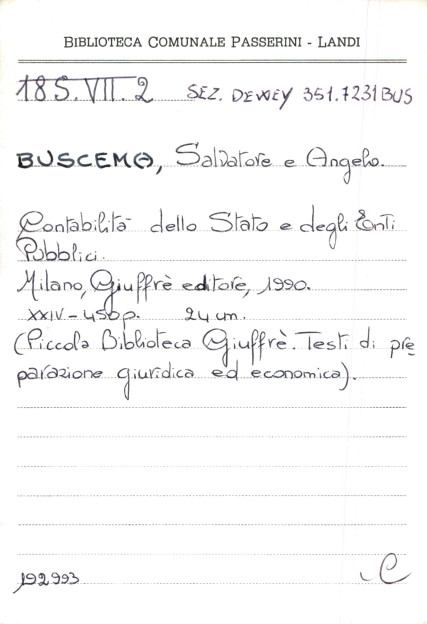 BIBLIOTECA COMUNALE PASSERINI - LANDI
18S.VII.2 SEZ. DEWEY 351.7231BUS
BUSCEMA, Salvatore e Angelo.
Contabilità dello Stato e degli Enti
Pubblici.
Milano, Giuffrè editore, 1990.
XXIV - 456 p. 24 cm.
(Piccola Biblioteca Giuffrè. Testi di pre
parazione giuridica ed economica).
192993 C